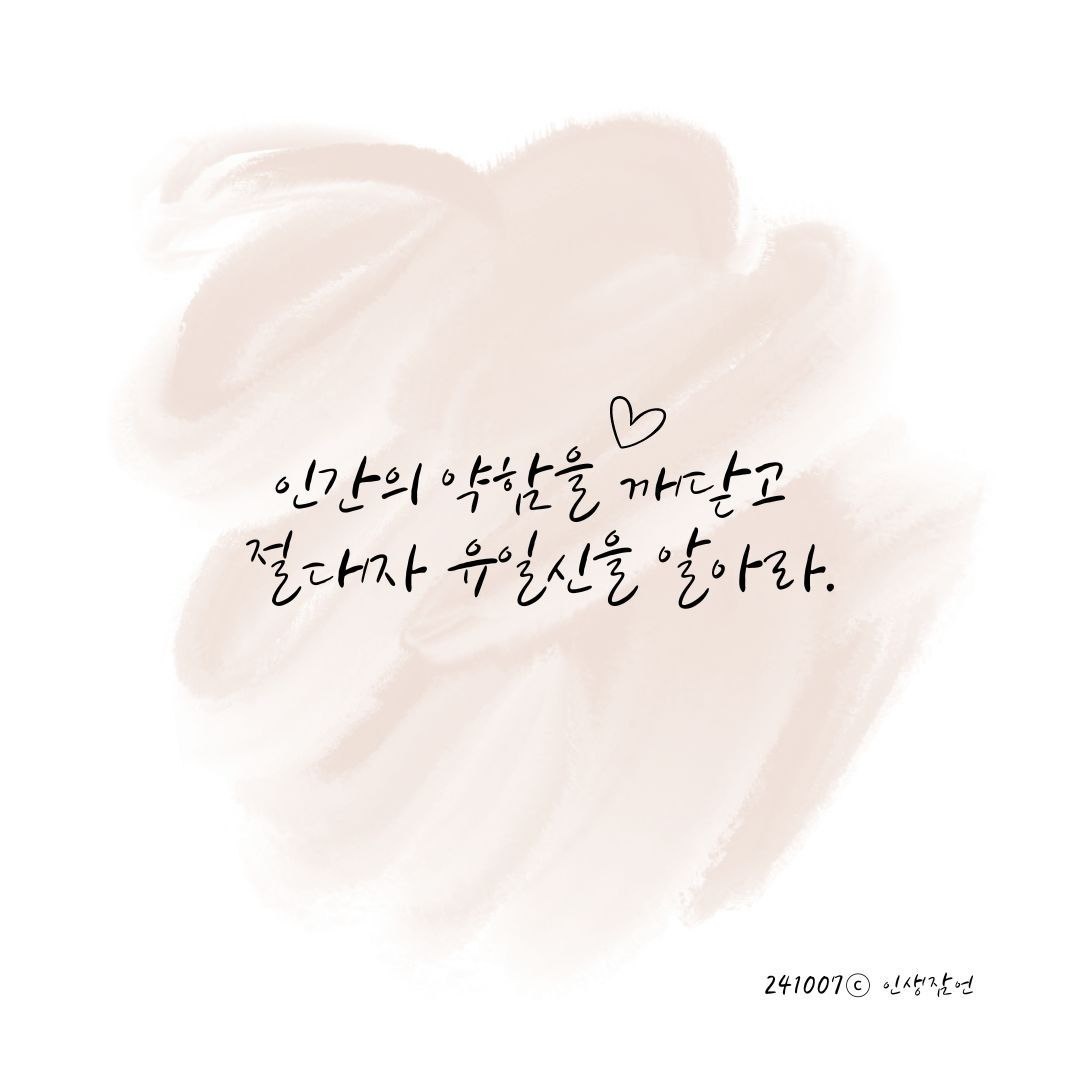 인간의 약함을 깨닫고
절대자 유일신을 알아라.
241007ⓒ 인생잠언